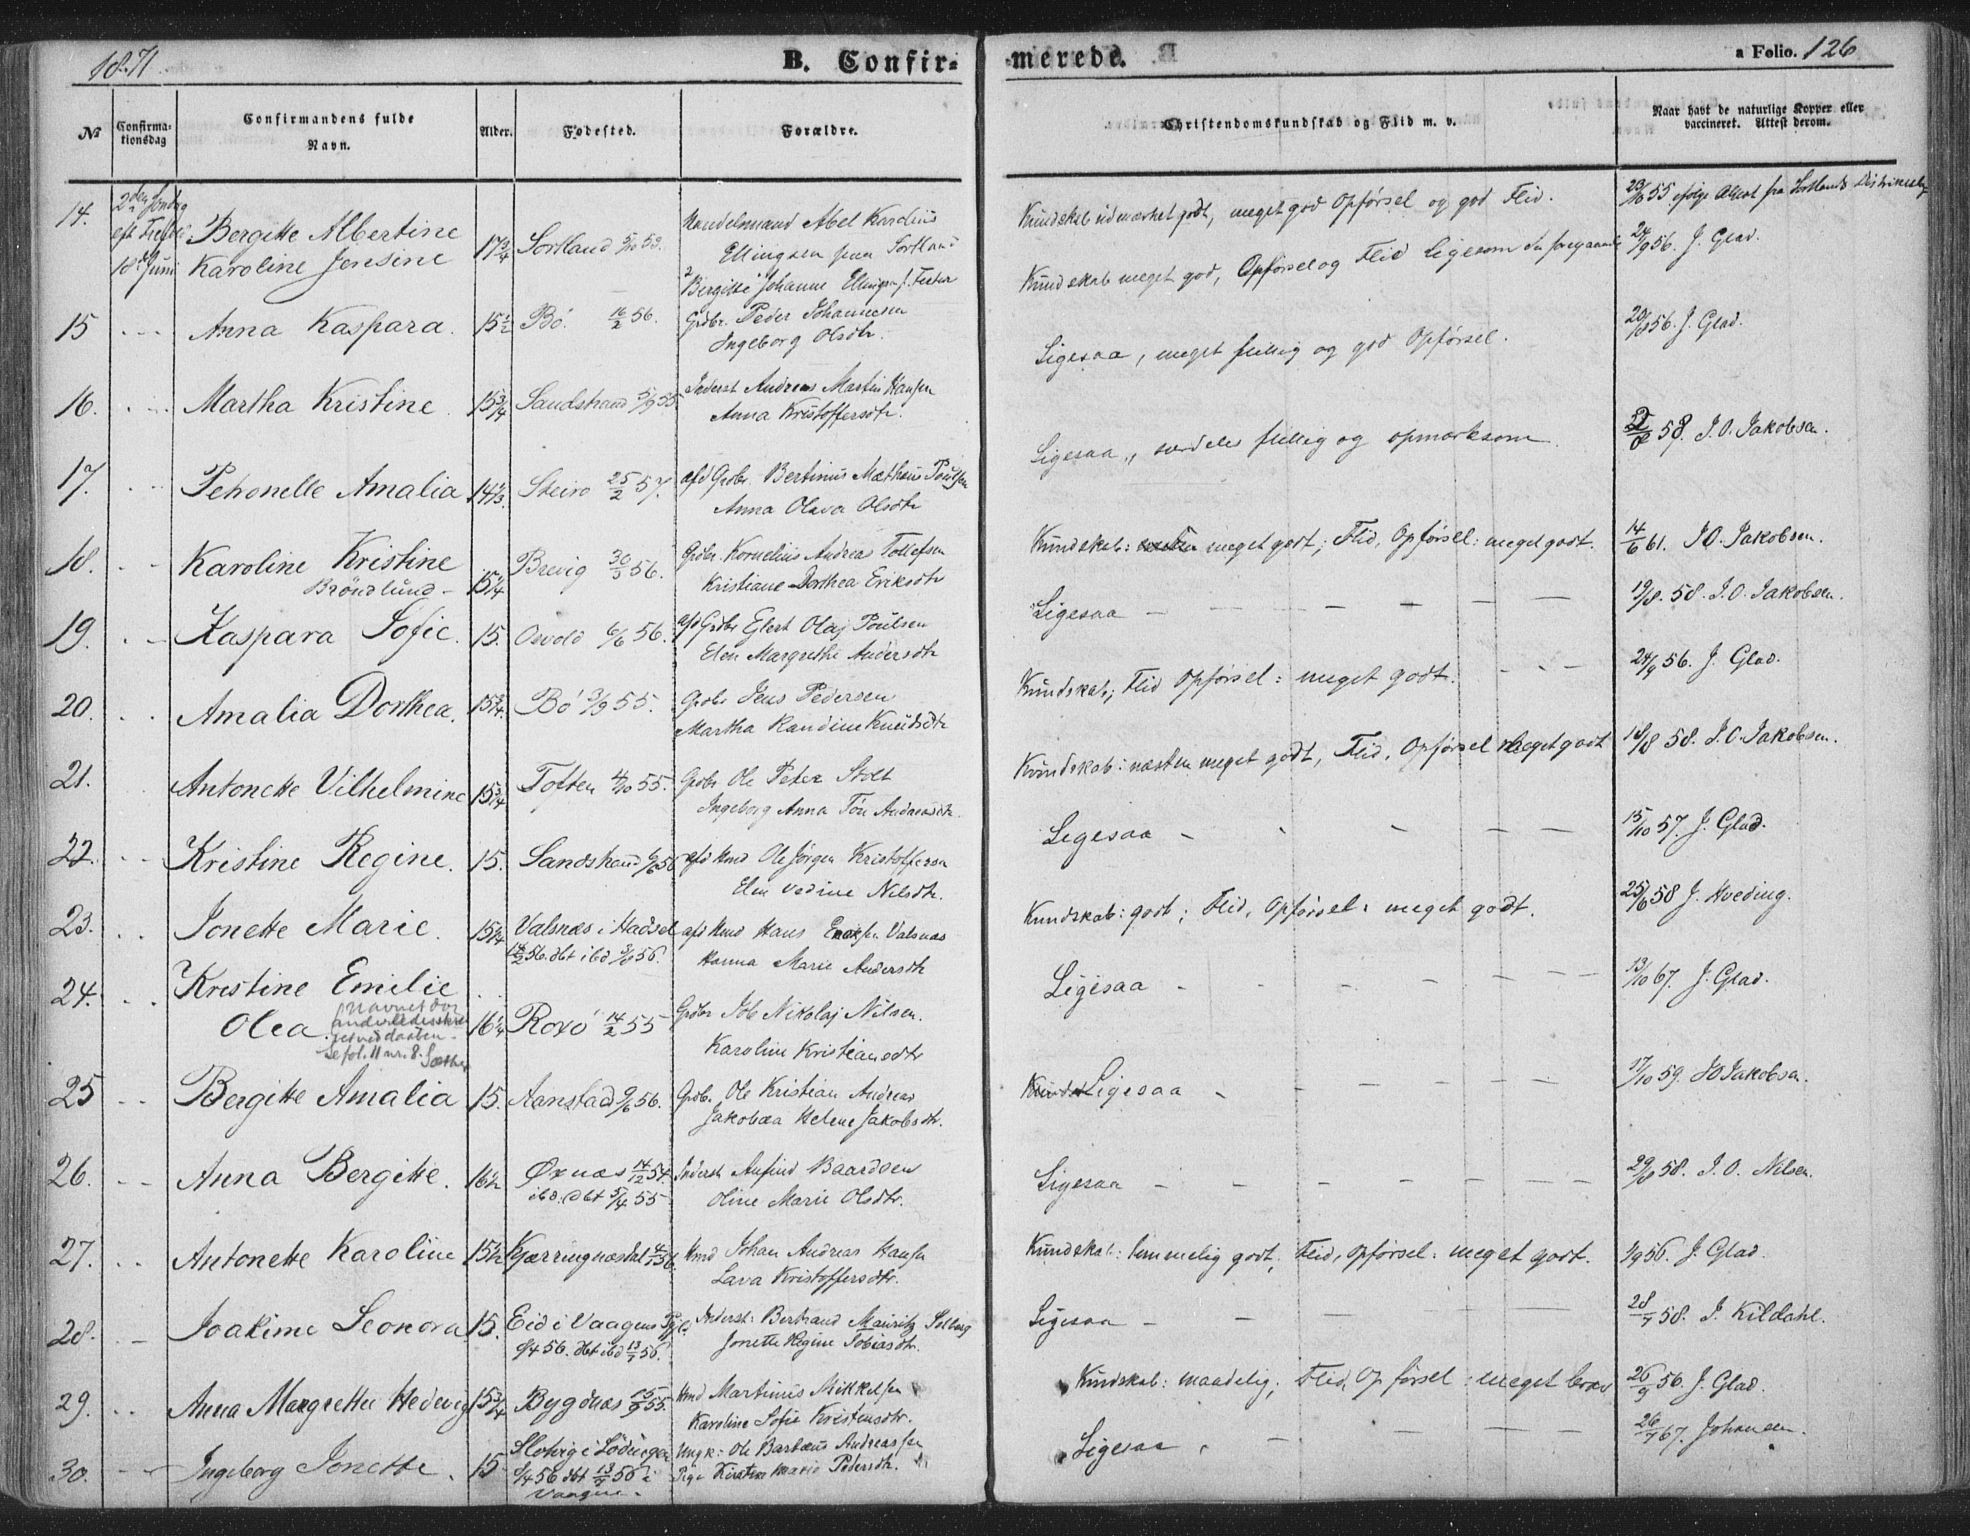 1871
B. Confir-
merede.
a Folio. 126
№
Confirma-
tionsdag
Confirmandens fulde
Navn.
Alder.
Fødested.
Forældre.
Christendomskundskab og Flid m. v.
Naar havt de naturlige Kopper eller
vaccineret. Attest derom.
14.
2den Søndag
eft Trefol.
18d Juni
Bergitte Albertine
Karoline Jensine
17 3/4
Sortland 5/10 53.
Handelsmand Abel Kardius
Ellingsen paa Sortland
Bergitte Johanne Ellingsen f.
Kundskab udmærket godt, meget god Opførsel og god Flid.
23/8 55 ifølge Attest fra Sortlands
15
Anna Kaspara.
15 1/2
Bö. 16/2 56.
Grdbr. Peder Johannesen
Ingeborg Olsdtr.
Kundskab meget god, Opførsel og Flid ligesom den foregaaende
24/9 56. J. Glad.
16.
Martha Kristine
15 3/4
Sandstrand 5/9 55.
Inderst Andreas Martin Hansen
Anna Kristoffersdtr.
Ligesaa, meget flittig og god Opførsel.
20/8 56. J. Glad.
17.
Petronelle Amalia
14 1/3
Steiro 25/2 57.
afd Grdbr. Bertinus Mathæus Poulsen
Anna Olava Olsdtr
Ligesaa, særdeles flittig og opmærksom
58. J. O. Jakobsen.
18.
Karoline Kristine
Bröndlund -
15 1/4
Brevig 30/3 56.
Grdbr. Kornelius Andreas Tollefsen
Kristiane Dorthea Eriksdtr
Kundskab: meget godt; Flid, Opførsel: meget godt.
14/6 61. J O. Jakobsen.
19.
Kaspara Sofie.
15.
Osvold 6/6 56.
afd Grdbr Ejlert Olaj Poulsen
Elen Margrethe Andersdtr
Ligesaa
19/8. 58. J. O. Jakobsen.
20.
Amalia Dorthea.
15 3/4.
Bö 3/9 55.
Grdbr Jens Pedersen
Martha Randine Knudsdtr
Kundskab; Flid Opførsel: meget godt.
24/9 56. J. Glad.
21.
Antonette Vilhelmine
15 3/4
Toften 4/10 55.
Grdbr. Ole Peter Stolt
Ingeborg Anna Andreasdtr.
Kundskab: næsten meget godt, Flid, Opførsel meget godt
18/8 58. J. O. Jakobsen.
22.
Kristine Regine.
15.
Sandstrand 6/6 56
afd Hmd Ole Jörgen Kristoffersen
Elen Vedine Nilsdtr.
Ligesaa
15/10 57. J. Glad.
23.
Jonette Marie.
15 1/4
Valsnæs i Hadsel
14/2 56. dbt ibd 3/8 56.
afd Hmd Hans Eriksen Valsnæs
Hanna Marie Andersdtr
Kundskab: godt; Flid, Opførsel: meget godt.
25/6 58 J. Hveding.
24.
Kristine Emilie
Olea.
Navnet var
anderledes skre-
vet ved daaben.
Se fol. 11 nr. 8. Sæther
16 1/4
Roxö 14/2 55
Grdbr Job Nikolaj Nilsen.
Karoline Kristiansdtr
Ligesaa
13/10 67. J. Glad.
25
Bergitte Amalia
15.
Aanstad 9/6 56.
Grdbr. Ole Kristian Andreas
Jakobæa Helene Jakobsdtr.
Ligesaa
17/10 59. J O Jakobsen.
26.
Anna Bergitte.
16 1/2
Øxnæs 14/12 54.
ibd. dbt 5/4 55
Inderst Anfind Baardsen
Oline Marie Olsdtr.
Ligesaa
29/8 58. J. O. Nilsen.
27.
Antonette Karoline
15 1/2
Kjærringnæsdal
Hmd Johan Andreas Hansen
Lava Kristoffersdtr.
Kundskab: temmelig godt, Flid, Opførsel: meget godt.
1/9 56. J. Glad.
28.
Joakime Leonora
15.
Eid i Vaagens Pgjld
9/4 56. dbt ibd 13/7 56.
Inderst: Bertrand Mauritz Solberg
Jonette Regine Tobiasdtr.
Ligesaa
28/7 58. J. Kildahl.
29.
Anna Margrethe Hedevig
15 3/4
Bygdnæs 15/9 55.
Hmd Martinus Mikkelsen
Karoline Sofie Kristensdtr.
Kundskab: maadelig; Flid, Opførsel: meget brav
26/9 56. J. Glad.
30.
Ingeborg Jonette.
15
Slotvig i Lödingen
9/4 56 dbt 13/7 56 i
Vaagen.
Ungk: Ole Bartæus Andreassen
Pige Kirstine Maria Pedersdtr.
Ligesaa
26/7 67. Johansen.